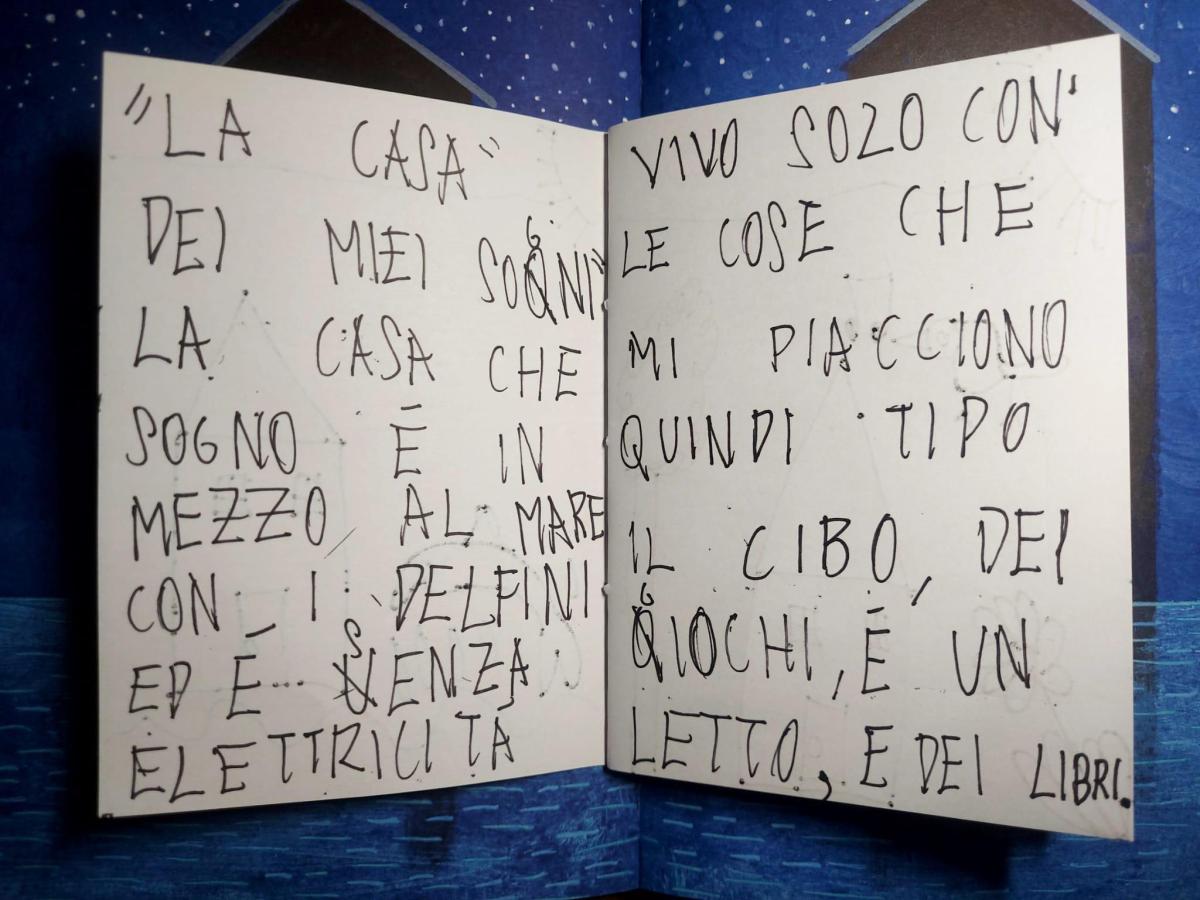 "LA CASA"
DEI MIEI SOGNI"
LA CASA CHE
SOGNO È IN
MEZZO AL MARE
CON I DELFINI
ED È SENZA
ELETTRICITÀ
VIVO SOZO CON
LE COSE CHE
MI PIACCIONO
QUINDI TIPO
IL CIBO, DEI
GIOCHI, È UN
LETTO, E DEI LIBRI.